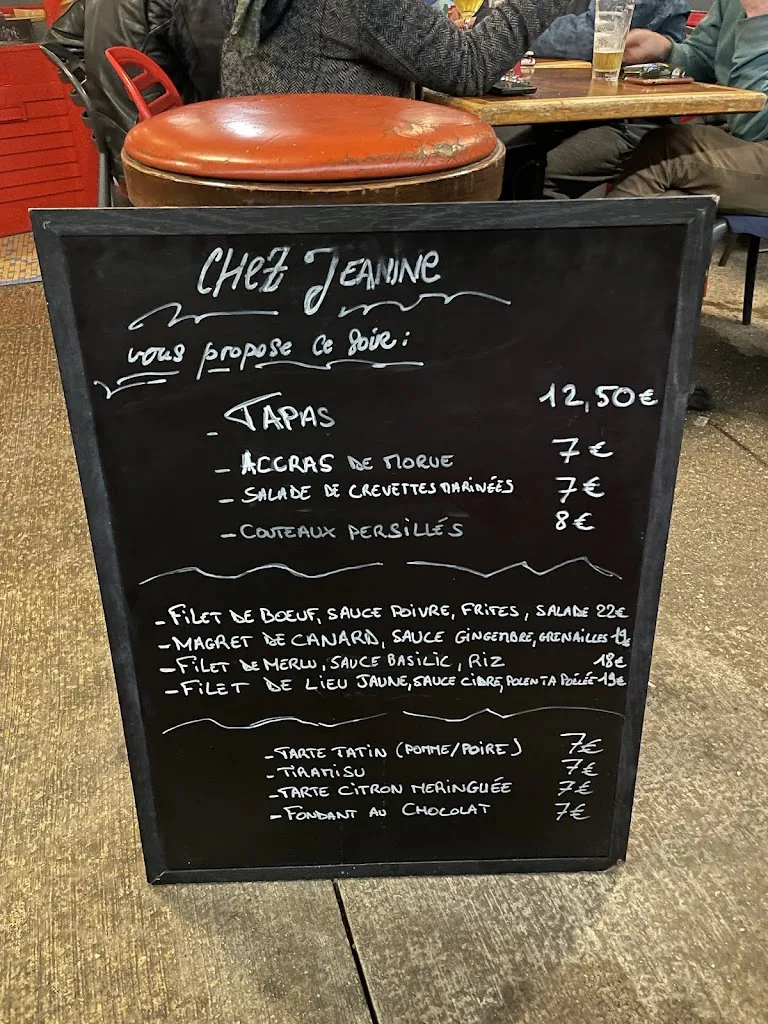 CHEZ JEANINE
vous propose ce soir :
- TAPAS 12,50€
- ACCRAS DE MORUE 7€
- SALADE DE CREVETTES MARINÉES 7€
- COUTEAUX PERSILLÉS 8€
- FILET DE BOEUF, SAUCE POIVRE, FRITES, SALADE 22€
- MAGRET DE CANARD, SAUCE GINGEMBRE, GRENAILLES 19€
- FILET DE MERLU, SAUCE BASILIC, RIZ 18€
- FILET DE LIEU JAUNE, SAUCE CIDRE, POLENTA POÊLÉE 19€
- TARTE TATIN (POMME/POIRE) 7€
- TIRAMISU 7€
- TARTE CITRON MERINGUÉE 7€
- FONDANT AU CHOCOLAT 7€